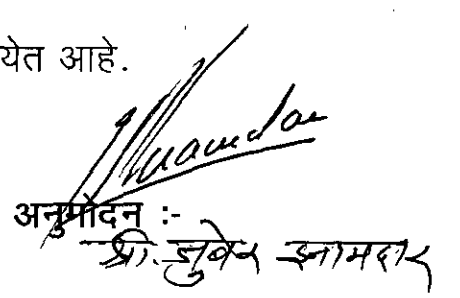 येत आहे.
अनुमोदन :-
श्री. जुबेर इनामदार